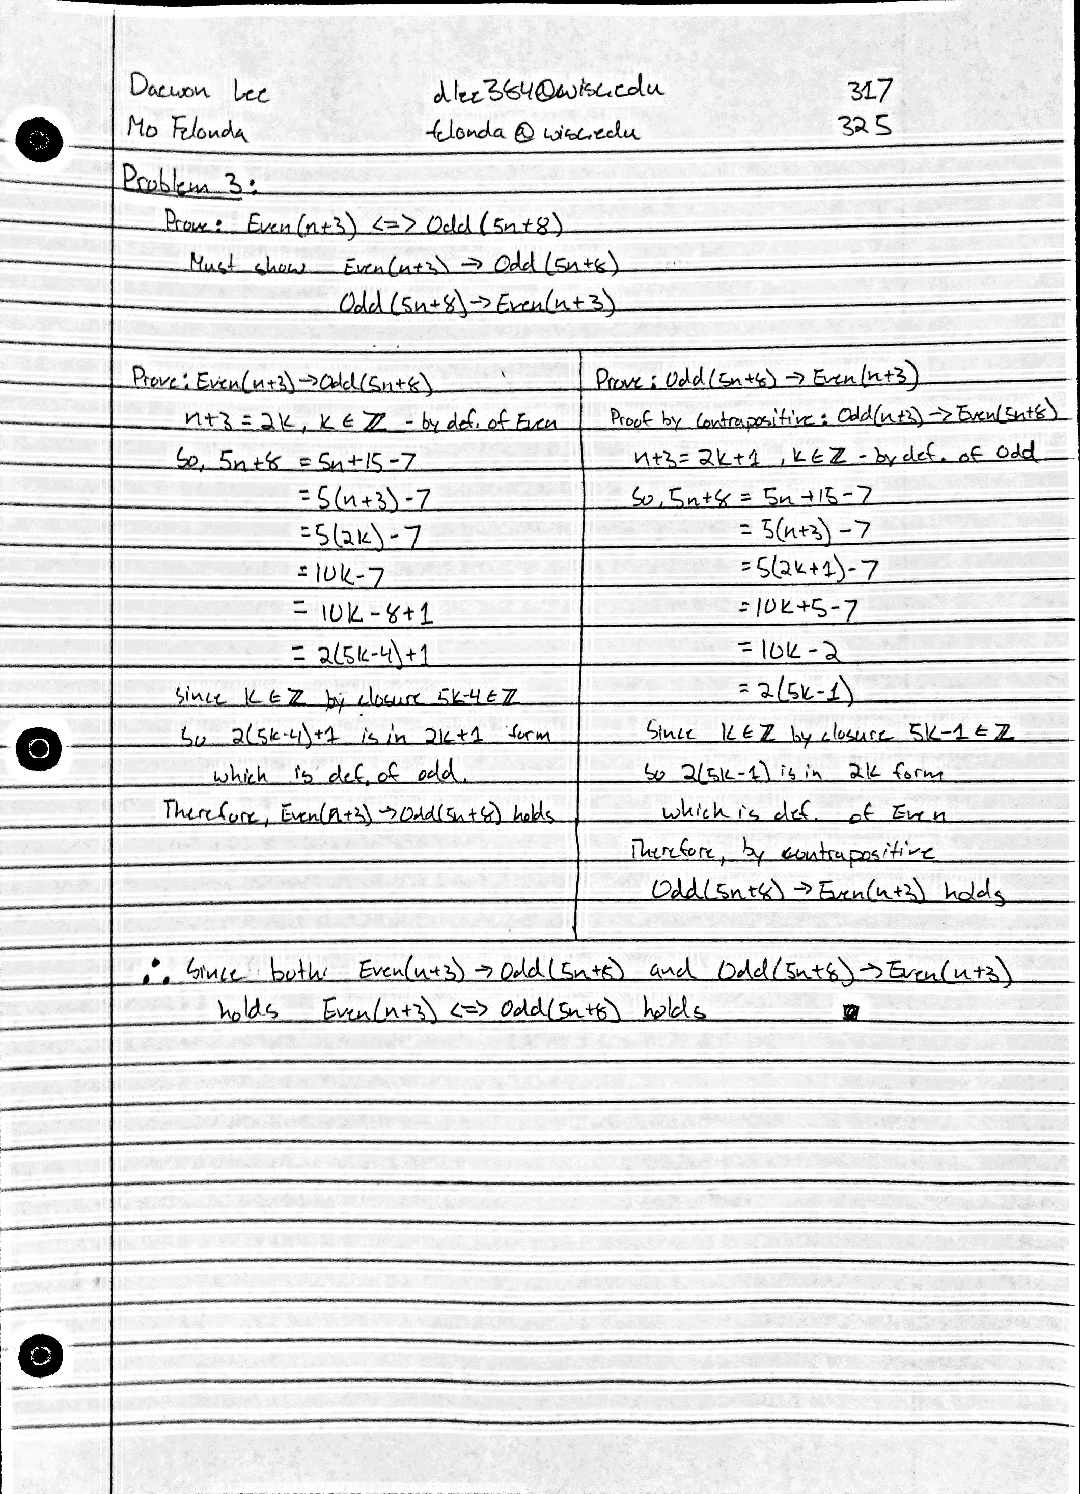 Daewon Lee dlee384@wisc.edu 317
Mo Felonda felonda@wisc.edu 325
Problem 3:
Prove: Even(n+3) <=> Odd(5n+8)
Must show Even(n+3) → Odd(5n+8)
Odd(5n+8) → Even(n+3)
Prove: Even(n+3) → Odd(5n+8)
n+3 = 2k, k ∈ ℤ - by def. of Even
So, 5n+8 = 5n+15-7
= 5(n+3)-7
= 5(2k)-7
= 10k-7
= 10k-8+1
= 2(5k-4)+1
Since k ∈ ℤ by closure 5k-4 ∈ ℤ
So 2(5k-4)+1 is in 2k+1 form
which is def. of odd.
Therefore, Even(n+3) → Odd(5n+8) holds
Prove: Odd(5n+8) → Even(n+3)
Proof by contrapositive: Odd(n+3) → Even(5n+8)
n+3 = 2k+1, k ∈ ℤ - by def. of odd
So, 5n+8 = 5n+15-7
= 5(n+3)-7
= 5(2k+1)-7
= 10k+5-7
= 10k-2
= 2(5k-1)
Since k ∈ ℤ by closure 5k-1 ∈ ℤ
So 2(5k-1) is in 2k form
which is def. of Even
Therefore, by contrapositive
Odd(5n+8) → Even(n+3) holds
∴ Since both Even(n+3) → Odd(5n+8) and Odd(5n+8) → Even(n+3)
holds Even(n+3) <=> Odd(5n+8) holds